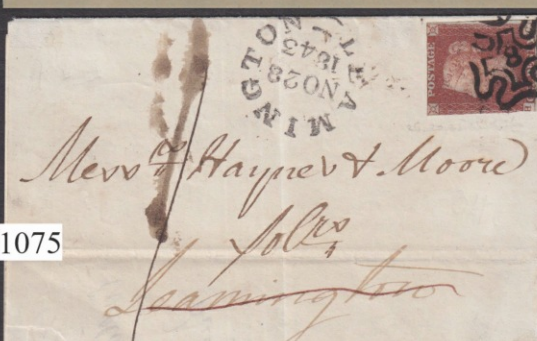 LEAMINGTON
NO 28
1843
POSTAGE
8
Messrs Haynes & Moore
Solrs
Leamington
1075